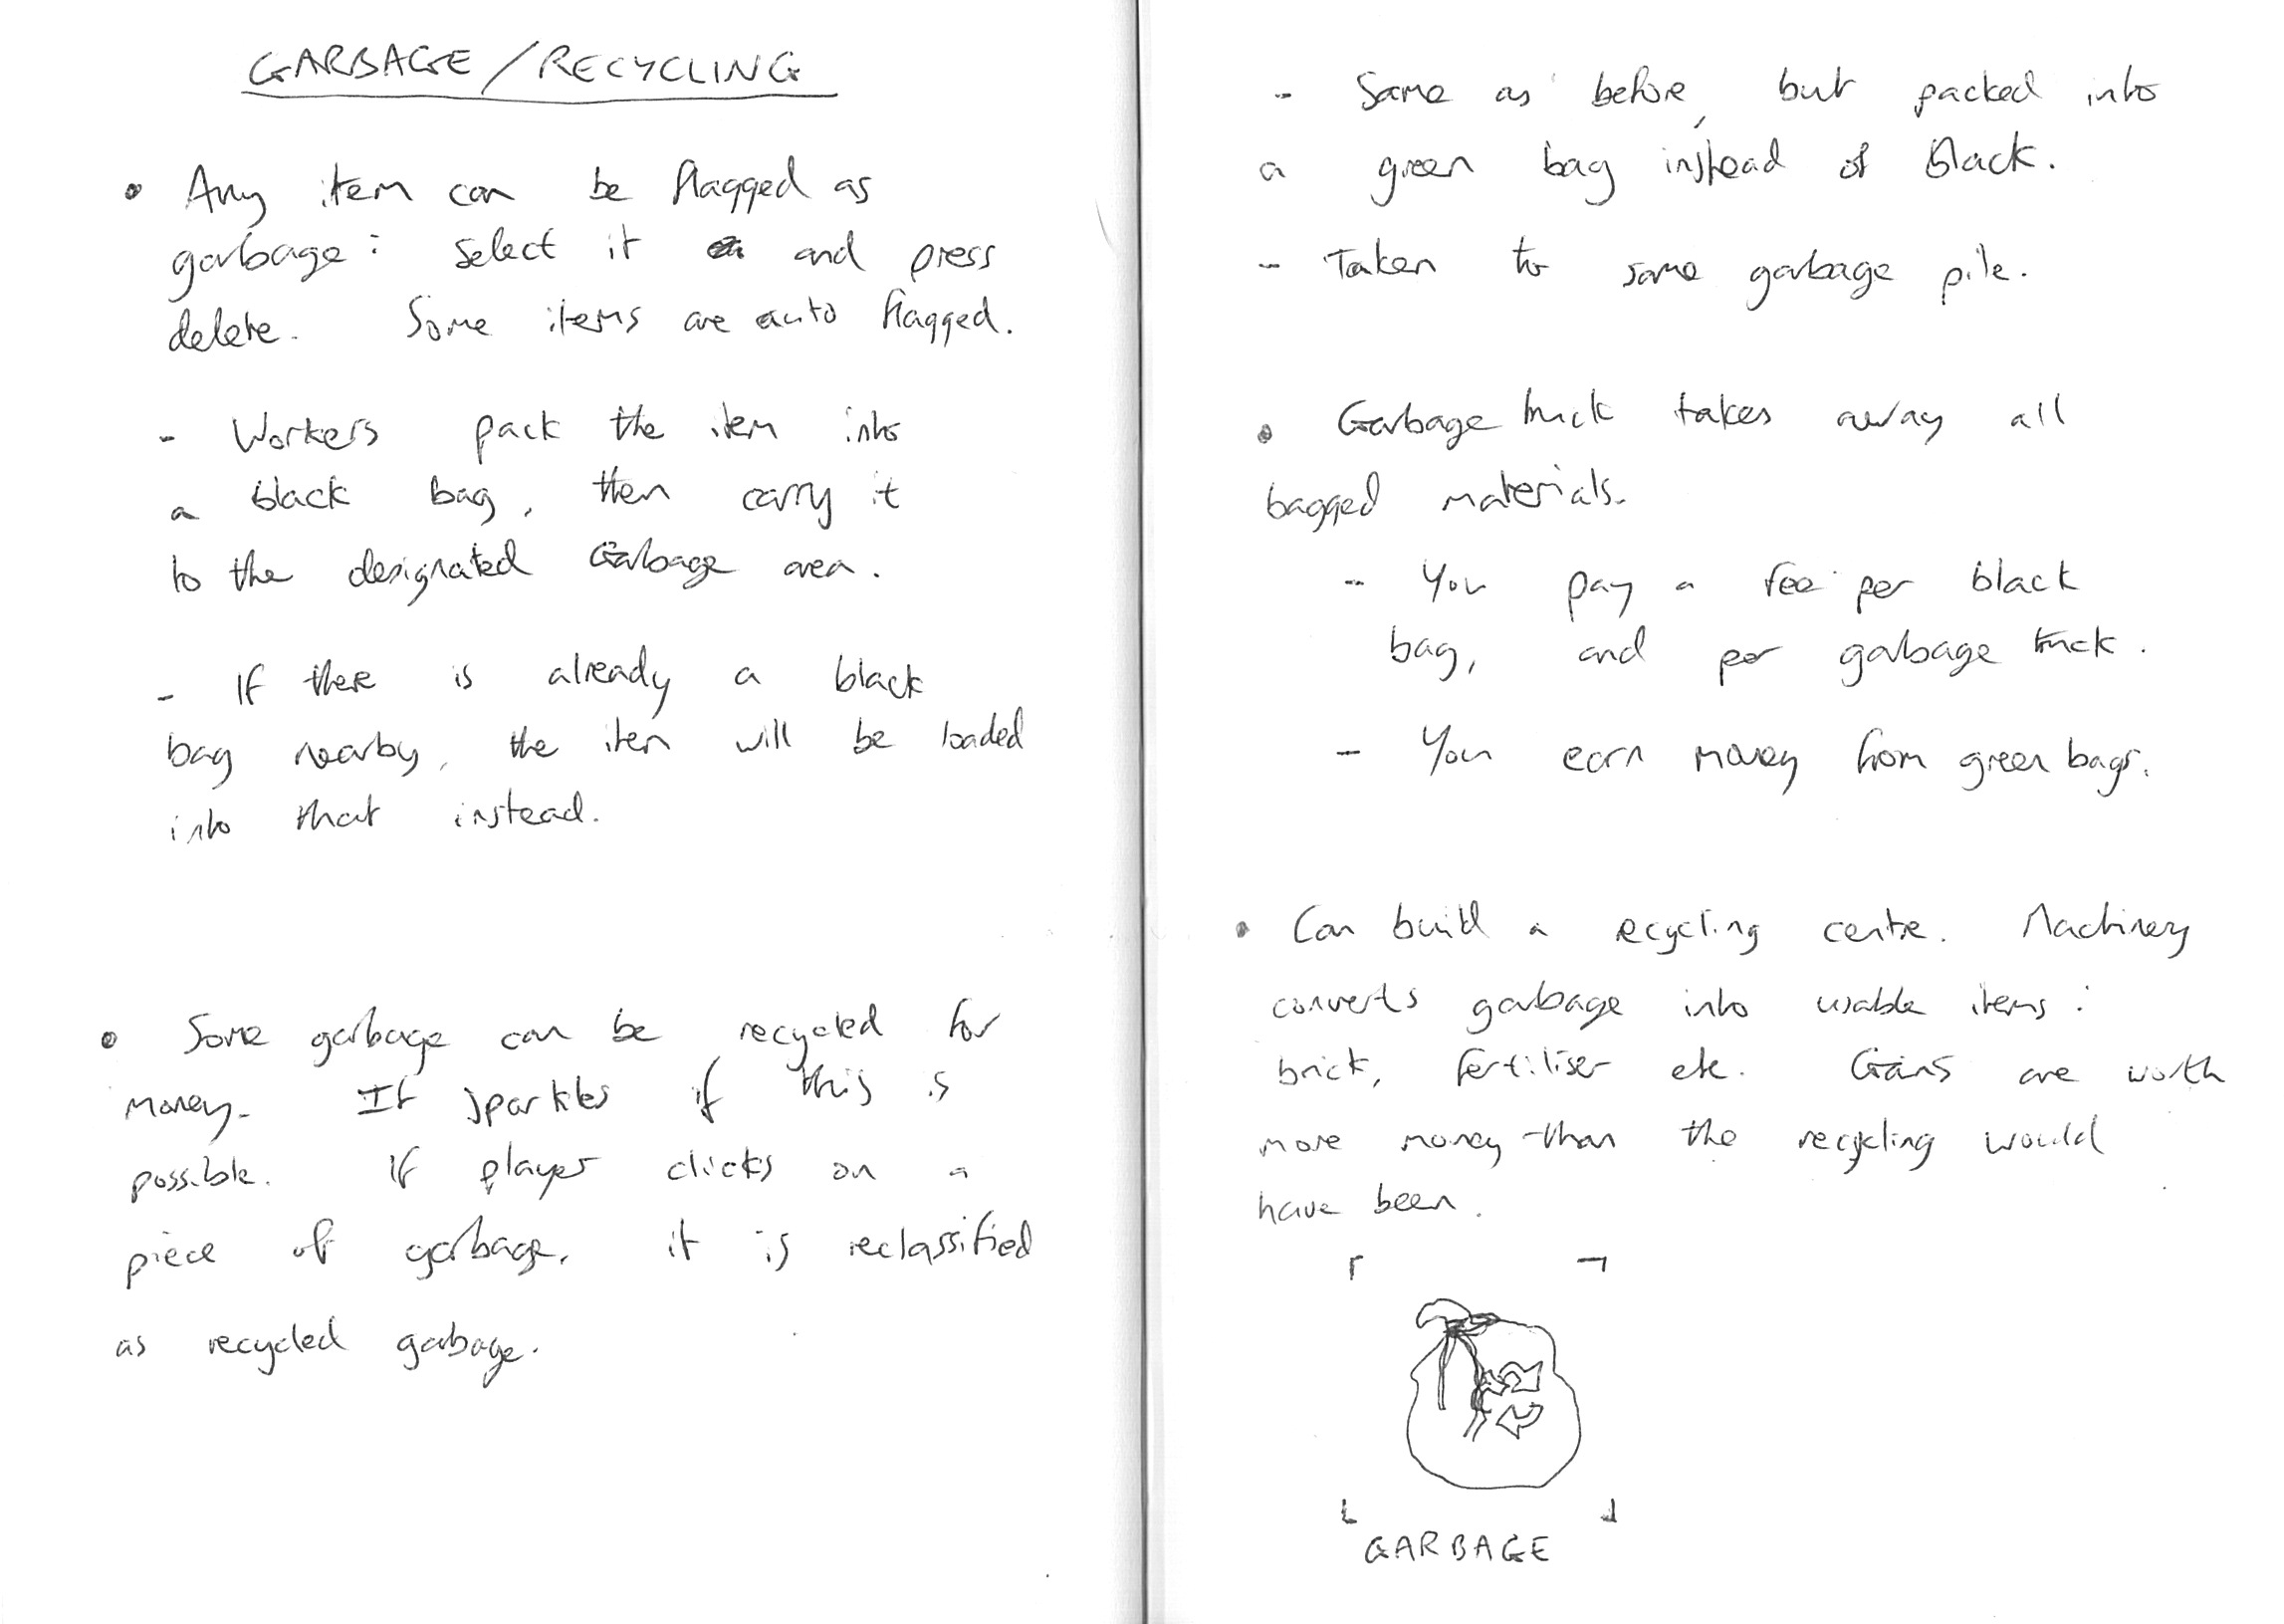 GARBAGE/RECYCLING
• Any item can be flagged as
garbage: select it and press
delete. Some items are auto flagged.
- Workers pack the item into
a black bag, then carry it
to the designated Garbage area.
- If there is already a black
bag nearby, the item will be loaded
into that instead.
• Some garbage can be recycled for
money. It sparkles if this is
possible. If player clicks on a
piece of garbage, it is reclassified
as recycled garbage.
- Same as before, but packed into
a green bag instead of black.
- Taken to same garbage pile.
• Garbage truck takes away all
bagged materials.
- You pay a fee per black
bag, and per garbage truck.
- You earn money from green bags.
• Can build a recycling centre. Machinery
converts garbage into usable items:
brick, fertiliser etc. Gains are worth
more money than the recycling would
have been.
GARBAGE